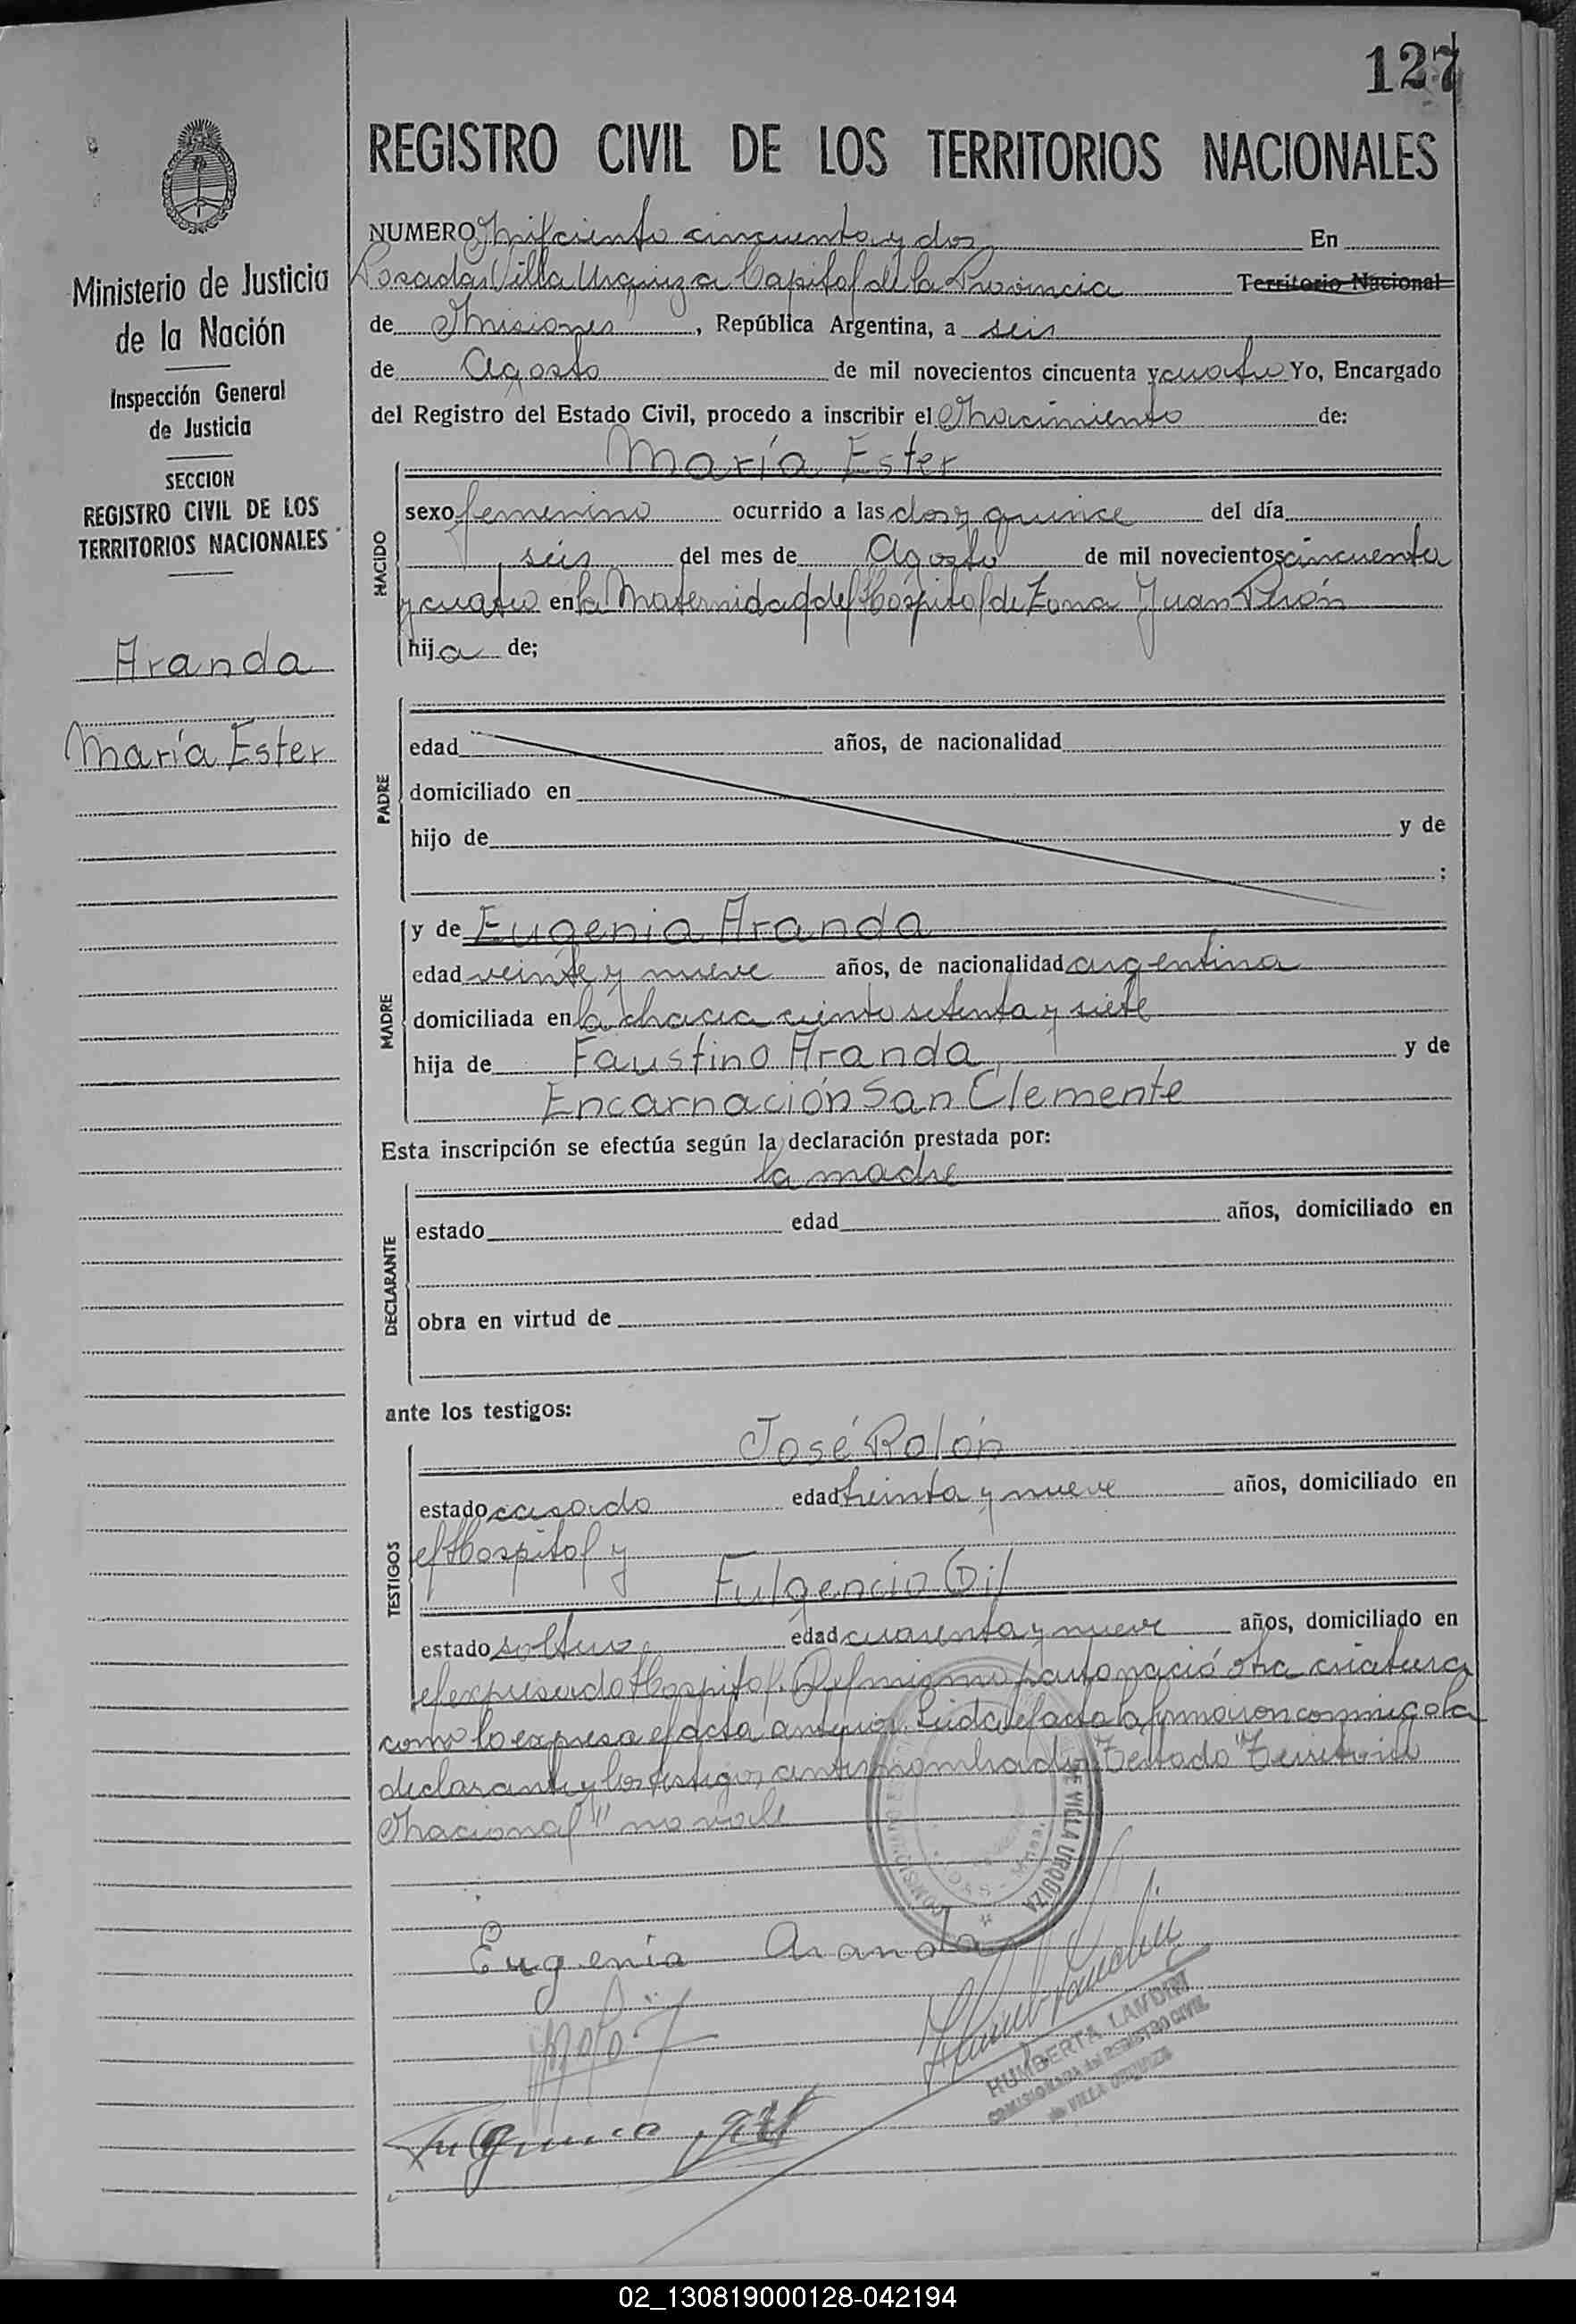 127
REGISTRO CIVIL DE LOS TERRITORIOS NACIONALES
Ministerio de Justicia
de la Nación
Inspección General
de Justicia
SECCION
REGISTRO CIVIL DE LOS
TERRITORIOS NACIONALES
Aranda
María Ester
NUMERO Mil ciento cincuenta y dos En
Posadas Villa Urquiza Capital de la Provincia Territorio Nacional
de Misiones, República Argentina, a seis
de Agosto de mil novecientos cincuenta y cuatro Yo, Encargado
del Registro del Estado Civil, procedo a inscribir el Nacimiento de:
NACIDO
María Ester
sexo femenino ocurrido a las dos y quince del día
seis del mes de Agosto de mil novecientos cincuenta
y cuatro en la Maternidad del Hospital de Zona Juan Perón
hija de;
PADRE
edad años, de nacionalidad
domiciliado en
hijo de y de
:
MADRE
y de Eugenia Aranda
edad veinte y nueve años, de nacionalidad argentina
domiciliada en la chacra ciento setenta y siete
hija de Faustino Aranda y de
Encarnación San Clemente
Esta inscripción se efectúa según la declaración prestada por:
DECLARANTE
la madre
estado edad años, domiciliado en
obra en virtud de
ante los testigos:
TESTIGOS
José Rolón
estado casado edad treinta y nueve años, domiciliado en
el Hospital y
Fulgencio Gil
estado soltero edad cuarenta y nueve años, domiciliado en
el expresado Hospital. Del mismo parto nació otra criatura
como lo expresa el acta anterior. Leida el acta la firmaron conmigo la
declarante y los testigos antes nombrados Testado "Territorio
Nacional" no vale
DE VILLA URQUIZA
Eugenia Aranda
HUMBERTA LANDRI
COMISIONADA del REGISTRO CIVIL
de VILLA URQUIZA
Fulgencio Gil
02_130819000128-042194